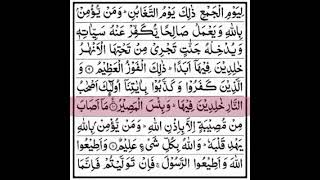 لِيَوْمِ الْجَمْعِ ذٰلِكَ يَوْمُ التَّغَابُنِ ؕ وَمَنْ يُّؤْمِنْۢ
بِاللّٰهِ وَيَعْمَلْ صَالِحًا يُّكَفِّرْ عَنْهُ سَيِّاٰتِهٖ
وَيُدْخِلْهُ جَنّٰتٍ تَجْرِيْ مِنْ تَحْتِهَا الْاَنْهٰرُ
خٰلِدِيْنَ فِيْهَاۤ اَبَدًا ؕ ذٰلِكَ الْفَوْزُ الْعَظِيْمُ ۝۹ وَ
الَّذِيْنَ كَفَرُوْا وَكَذَّبُوْا بِاٰيٰتِنَاۤ اُولٰٓئِكَ اَصْحٰبُ
النَّارِ خٰلِدِيْنَ فِيْهَا ؕ وَبِئْسَ الْمَصِيْرُ ۝۱۰ مَاۤ اَصَابَ
مِنْ مُّصِيْبَةٍ اِلَّا بِاِذْنِ اللّٰهِ ؕ وَمَنْ يُّؤْمِنْۢ بِاللّٰهِ
يَهْدِ قَلْبَهٗ ؕ وَاللّٰهُ بِكُلِّ شَيْءٍ عَلِيْمٌ ۝۱۱ وَاَطِيْعُوا
اللّٰهَ وَاَطِيْعُوا الرَّسُوْلَ ۚ فَاِنْ تَوَلَّيْتُمْ فَاِنَّمَا